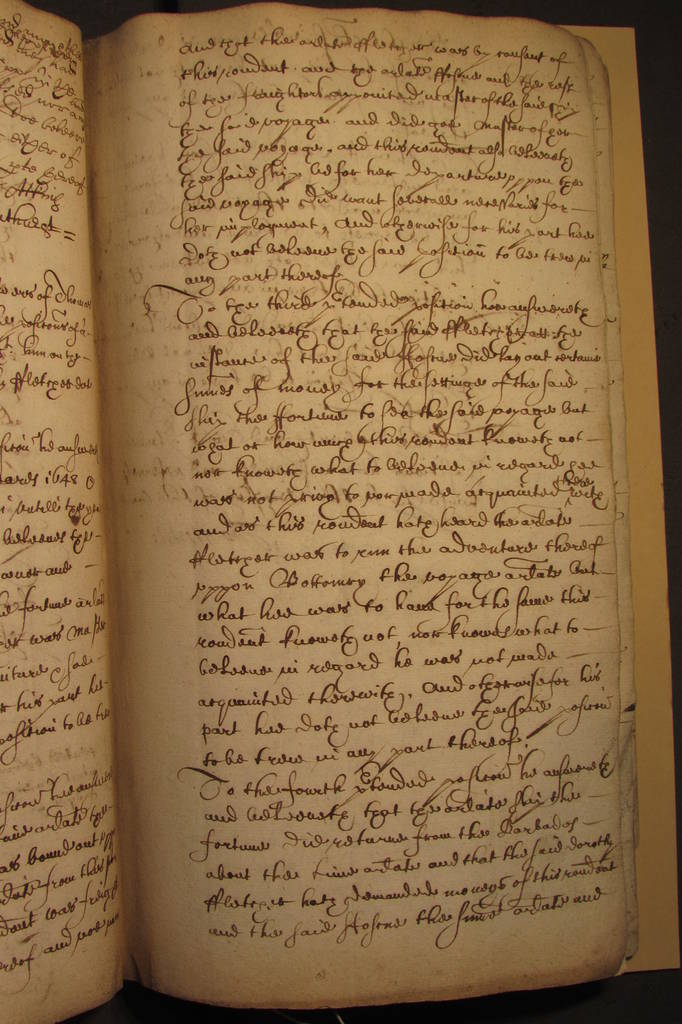 and that the arlate ffletcher was by consent of
this rondent and the arlate Hosene and the rest
of the freighters appointed master of the said ship
the said voyage and did goe Master of her
the said voyage, and this rondent alsoe beleeveth
the said ship before her departure uppon the
said voyage did want severall necessaries for
her imployment, And otherwise for his part hee
doth not beleeve the said position to be true in
any part thereof.
To the third pretended position hee answereth
and beleeveth that the said ffletcher att the
instance of the said Hosene did lay out certaine
summes of money for the settinge of the said
ship the ffortune to sea the said voyage but
what or how much this rondent knoweth not
nor knoweth what to beleeve in regard hee
was not privy to nor made acquainted therewith
and as this rondent hath heard the arlate
ffletcher was to run the adventure thereof
uppon Bottomry the voyage arlate but
what hee was to have for the same this
rondent knoweth not, nor knowes what to
beleeve in regard he was not made
acquainted therewith, And otherwise for his
part hee doth not beleeve the said position
to be true in any part thereof.
To the fourth pretended position he answereth
and beleeveth that the arlate ship the
fortune did returne from the Barbados
about the time arlate and that the said dorothy
ffletcher hath demanded moneys of this rondent
and the said Hosene the summe arlate and
ards 1648
beleeves the
owner and
he fortune arla
part he
position to be tru
was bound out
from this
dant was freig